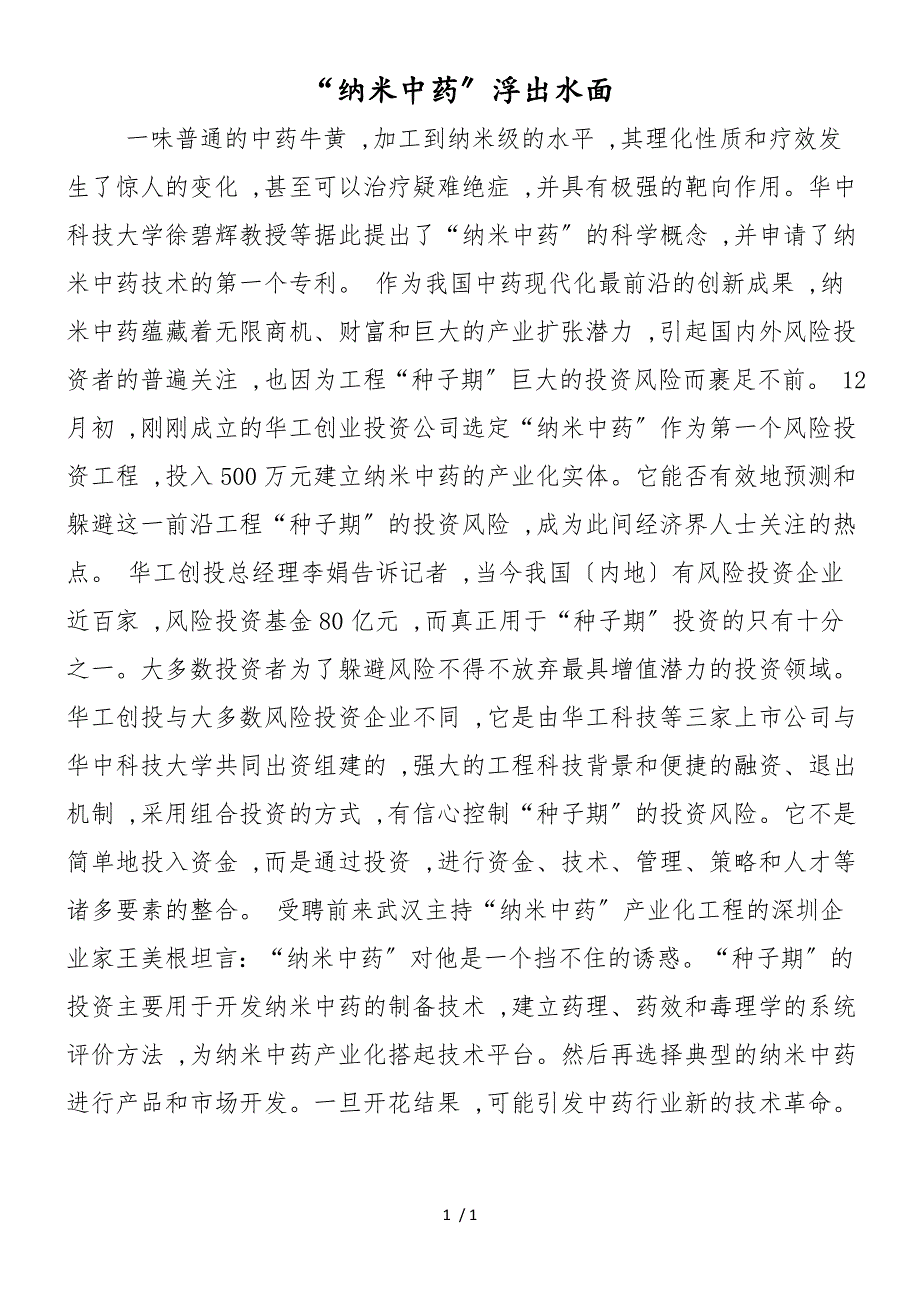 “纳米中药〞浮出水面
一味普通的中药牛黄 ,加工到纳米级的水平 ,其理化性质和疗效发
生了惊人的变化 ,甚至可以治疗疑难绝症 ,并具有极强的靶向作用。华中
科技大学徐碧辉教授等据此提出了“纳米中药〞的科学概念 ,并申请了纳
米中药技术的第一个专利。 作为我国中药现代化最前沿的创新成果 ,纳
米中药蕴藏着无限商机、财富和巨大的产业扩张潜力 ,引起国内外风险投
资者的普遍关注 ,也因为工程“种子期〞巨大的投资风险而裹足不前。 12
月初 ,刚刚成立的华工创业投资公司选定“纳米中药〞作为第一个风险投
资工程 ,投入 500 万元建立纳米中药的产业化实体。它能否有效地预测和
躲避这一前沿工程“种子期〞的投资风险 ,成为此间经济界人士关注的热
点。 华工创投总经理李娟告诉记者 ,当今我国〔内地〕有风险投资企业
近百家 ,风险投资基金 80 亿元 ,而真正用于“种子期〞投资的只有十分
之一。大多数投资者为了躲避风险不得不放弃最具增值潜力的投资领域。
华工创投与大多数风险投资企业不同 ,它是由华工科技等三家上市公司与
华中科技大学共同出资组建的 ,强大的工程科技背景和便捷的融资、退出
机制 ,采用组合投资的方式 ,有信心控制“种子期〞的投资风险。它不是
简单地投入资金 ,而是通过投资 ,进行资金、技术、管理、策略和人才等
诸多要素的整合。 受聘前来武汉主持“纳米中药〞产业化工程的深圳企
业家王美根坦言：“纳米中药〞对他是一个挡不住的诱惑。“种子期〞的
投资主要用于开发纳米中药的制备技术 ,建立药理、药效和毒理学的系统
评价方法 ,为纳米中药产业化搭起技术平台。然后再选择典型的纳米中药
进行产品和市场开发。一旦开花结果 ,可能引发中药行业新的技术革命。
1 / 1